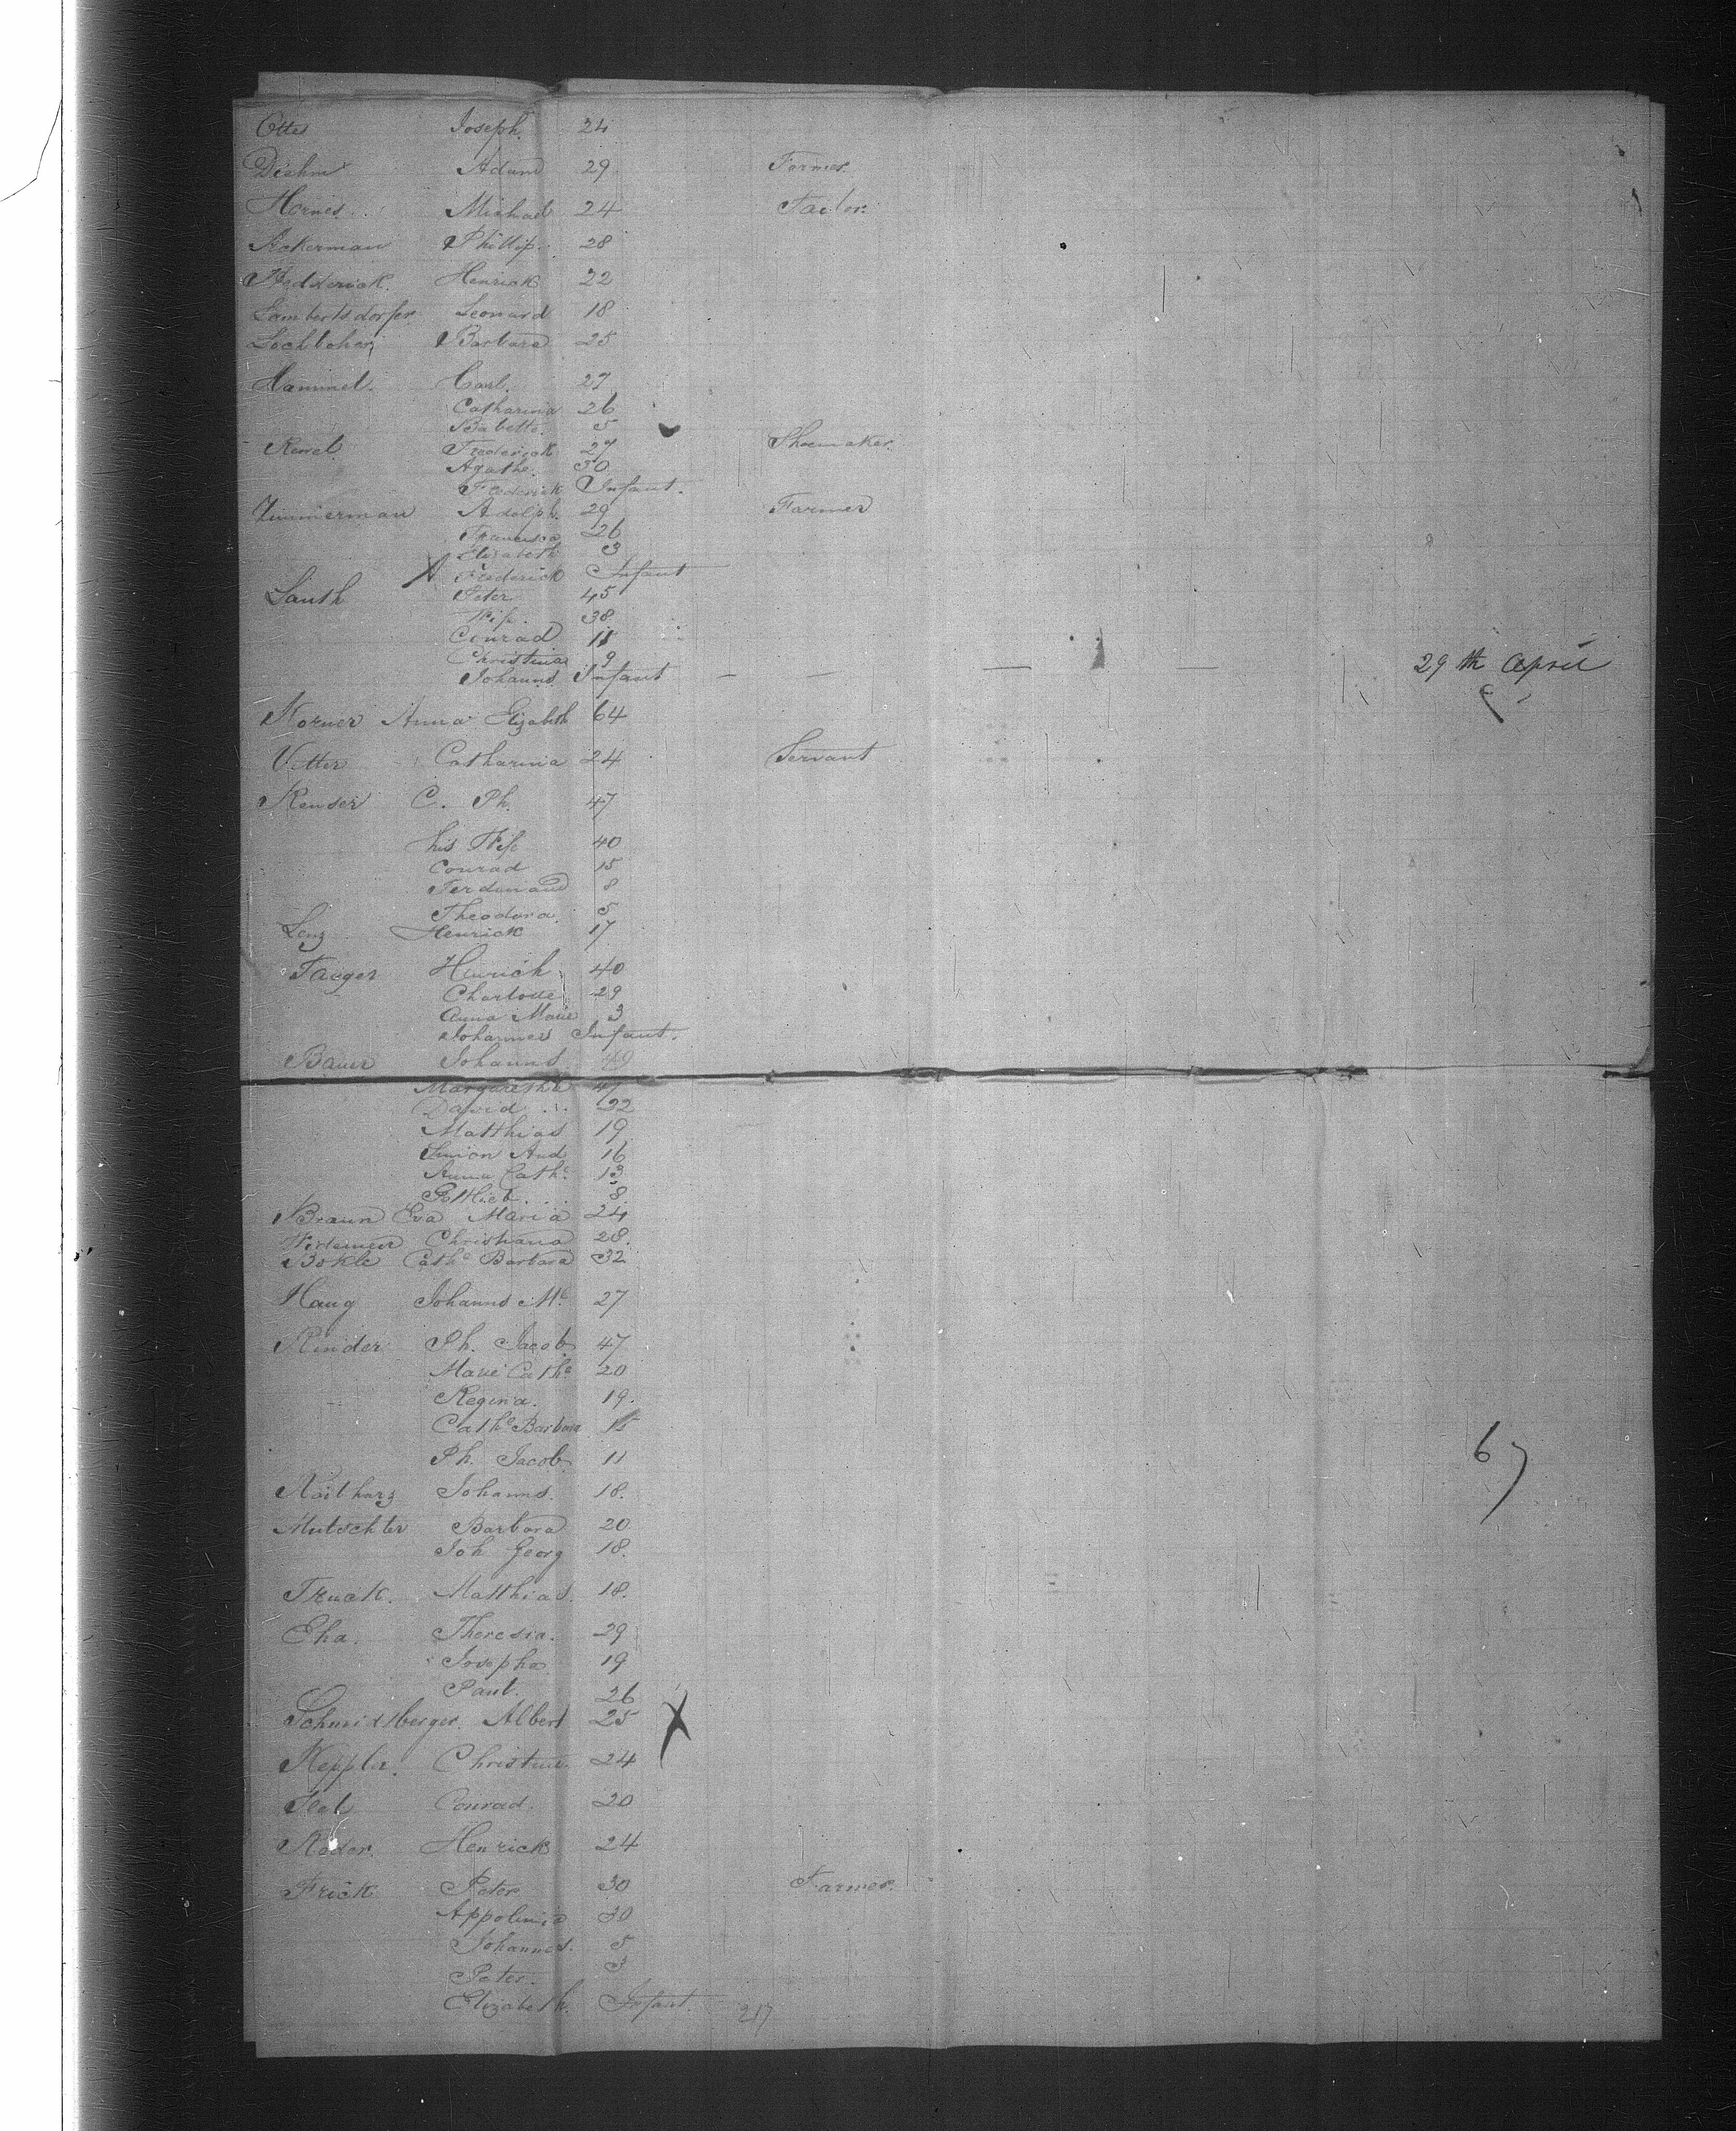 Ottes Joseph 24
Diehm Adam 29 Farmer
Hornes Michael 24 Tailor
Ackerman Phillip 28
Hedderick Henrick 22
Lambertsdorfer Leonard 18
Barbara 25
Hammel Carl 27
Catharina 26
Babette 5
Frederick 27 Shoemaker
Agathe 30
Frederick Infant.
Zimmerman Adolph 29 Farmer
Francisca 26
Elizabeth 3
X Frederick Infant
Lauth Peter 45
Wife 38
Conrad 11
Christina 9
Johanns Infant 29th April
Korner Anna Elizabeth 64
Vetter Catharina 24 Servant
C. Ph. 47
his Wife 40
Conrad 15
Ferdinand 8
Theodora 5
Lenz Henrick 17
Jaeger Heinrich 40
Charlotte 29
Anna Marie 3
Johannes Infant.
Bauer Johanns 49
Margaretha 47
David 22
Matthias 19
Simon And 16
Anna Cathe 13
Gottlieb 8
Braun Eva Maria 24
Christiana 28
Bokle Cathe Barbara 32
Haug Johanns Ms 27
Rinder Ph. Jacob 47
Marie Cathe 20
Regina. 19.
Cathe Barbara 15
Ph. Jacob 11
67
Johanns. 18.
Mutschter Barbara 20
Joh Georg 18.
Truck. Matthias 18.
Eha. Theresia. 29
Josepha 19
Paul. 26
Schmidsberger Albert 25 X
Keppler. Christine 24
Conrad. 20
Roder. Henrick 24
Frick Peter 30 Farmer
Appolonia 30
Johannes. 5
Peter. 3
Elizabeth. Infant. 217